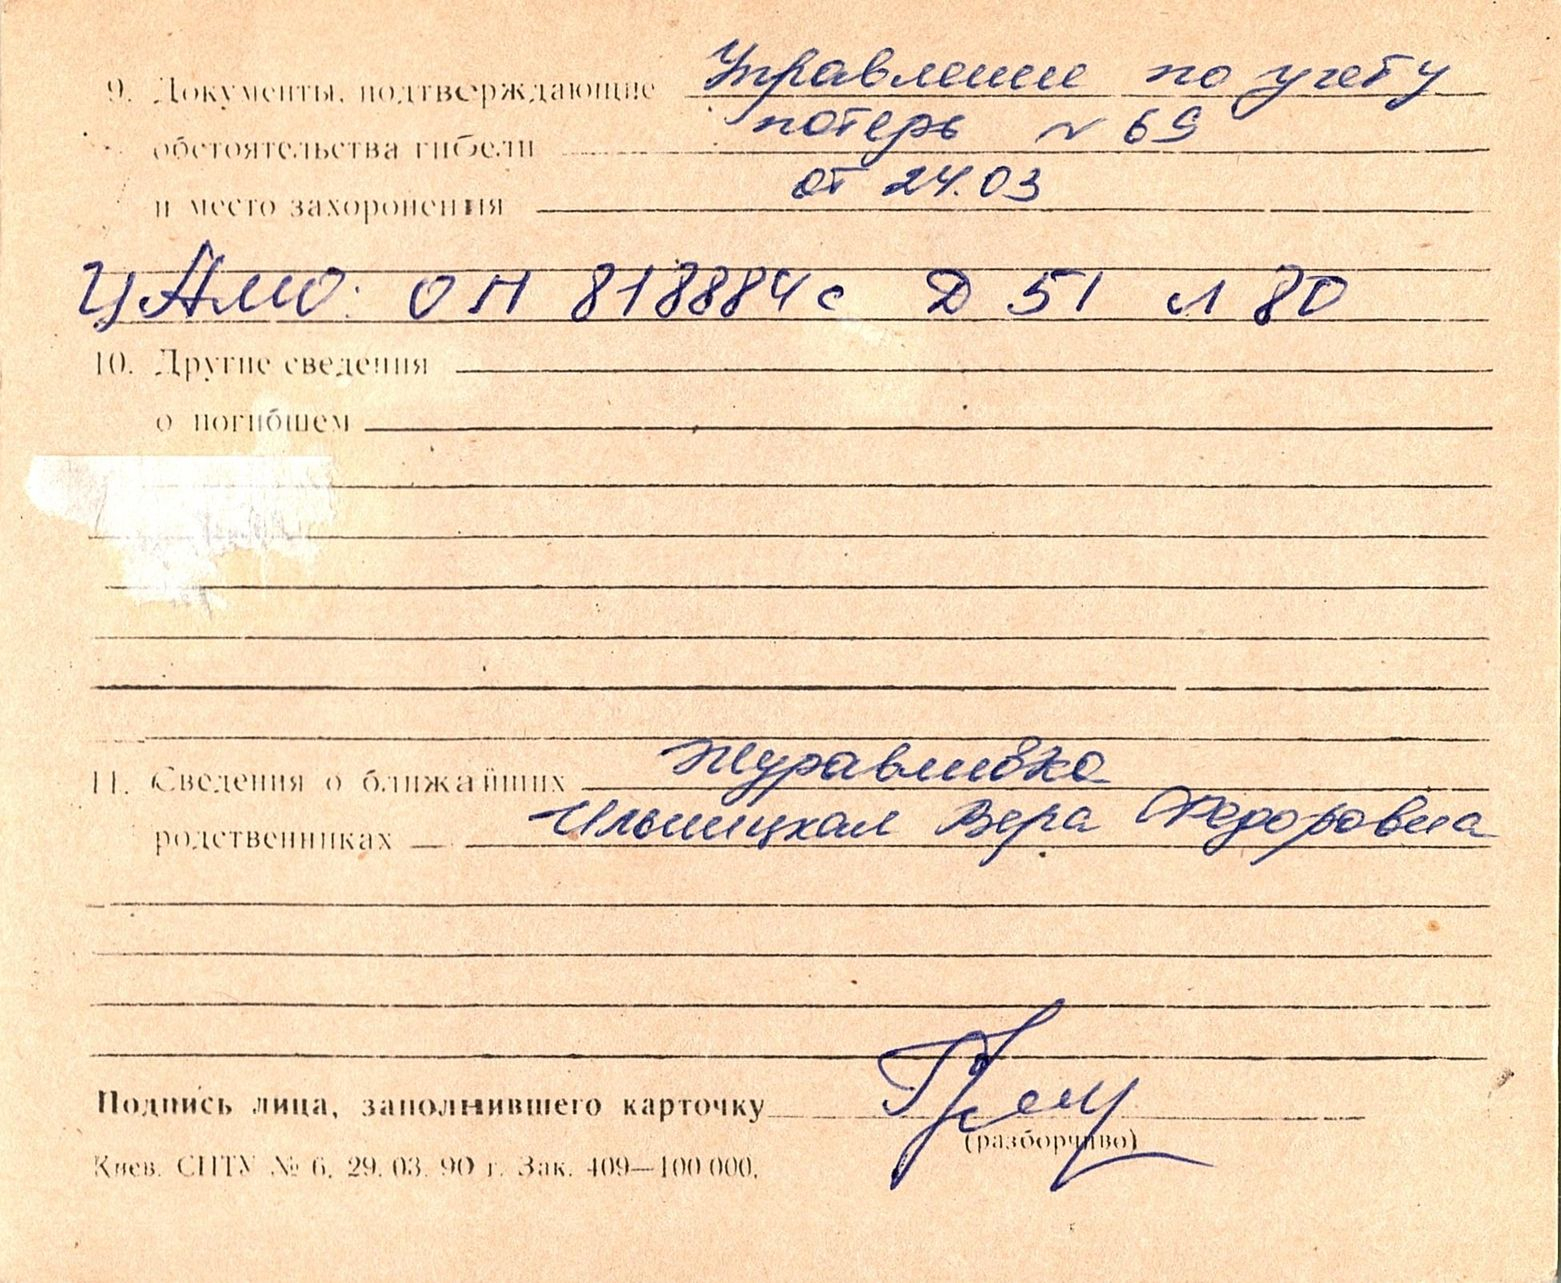 9. Документы, подтверждающие Управление по учету
обстоятельства гибели потерь N 69
и место захоронения от 24.03
ЦАМО. ОП 818884с Д 51 л 80
10. Другие сведения
о погибшем
11. Сведения о ближайших Журавливка
родственниках Ильницкая Вера Федоровна
Подпись лица, заполнившего карточку
(разборчиво)
Киев. СПТУ № 6. 29. 03. 90 г. Зак. 409—100 000.